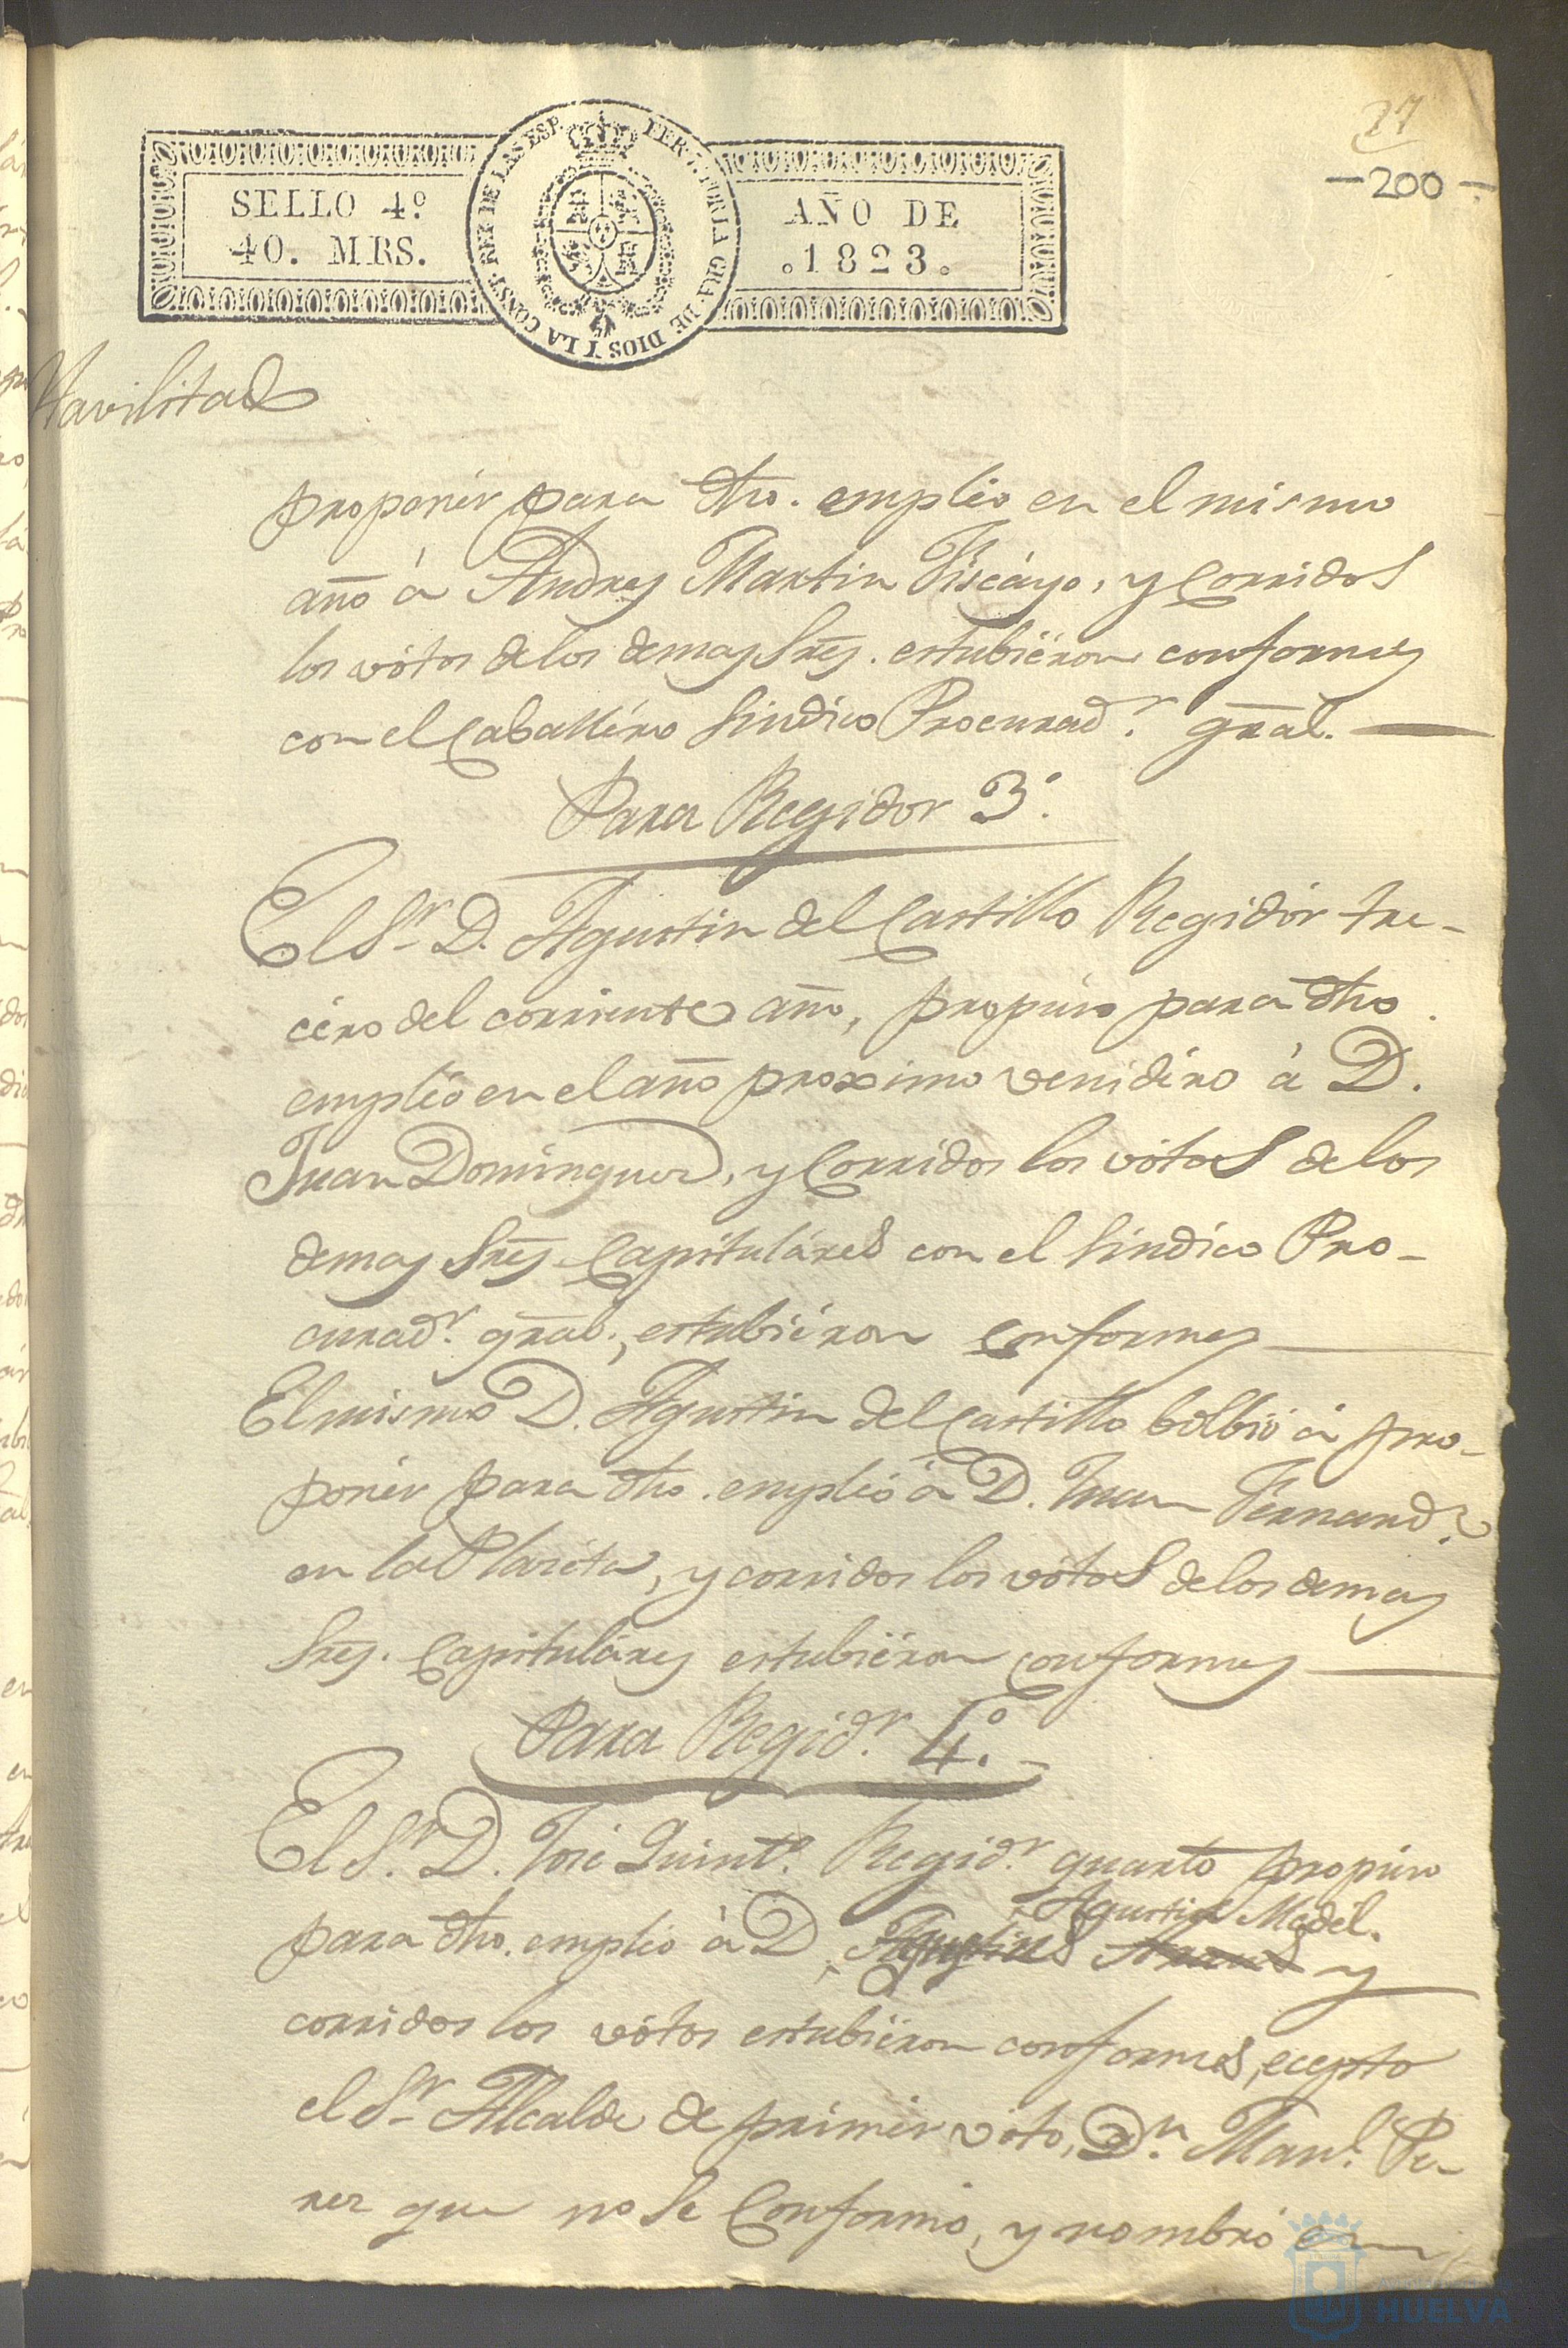 27
-200-
SELLO 4º
40. MRS.
FER. 7. POR LA GRA. DE DIOS Y LA CONST. REY DE LAS ESP.
AÑO DE
.1823.
Havilitad
proponér para dho. empléo en el mismo
año á Andres Martin Viscáyo, y corridos
los vótos de los demas Sres. estubiéron conformes
con el Caballéro Sindico Procurad.r gral.
Para Regidor 3.º
El Sr. D. Agustin del Castillo Regidór ter-
céro del corriente año, propúso para dho.
empléo en el año proximo venidéro á D.
Juan Dominguez, y corridos los vótos de los
demas Sres. Capituláres con el Sindico Pro-
curad.r gral., estubiéron conformes
El mismo D. Agustin del Castillo bolbió á pro-
ponér para dho. empléo á D. Juan Fernand.z
en la Placéta, y corridos los vótos de los demas
Sres. Capituláres estubiéron conformes
Para Regid.r 4.º
El S.r D. José Quint.o Regid.r quarto propúso
Agustin Madél.
para dho. empléo á D. y
corridos los vótos estubiéron conformes, ecepto
el S.r Alcalde de primér voto, D.n Man.l Pe-
rez que no se conformó, y nombró en
HUELVA